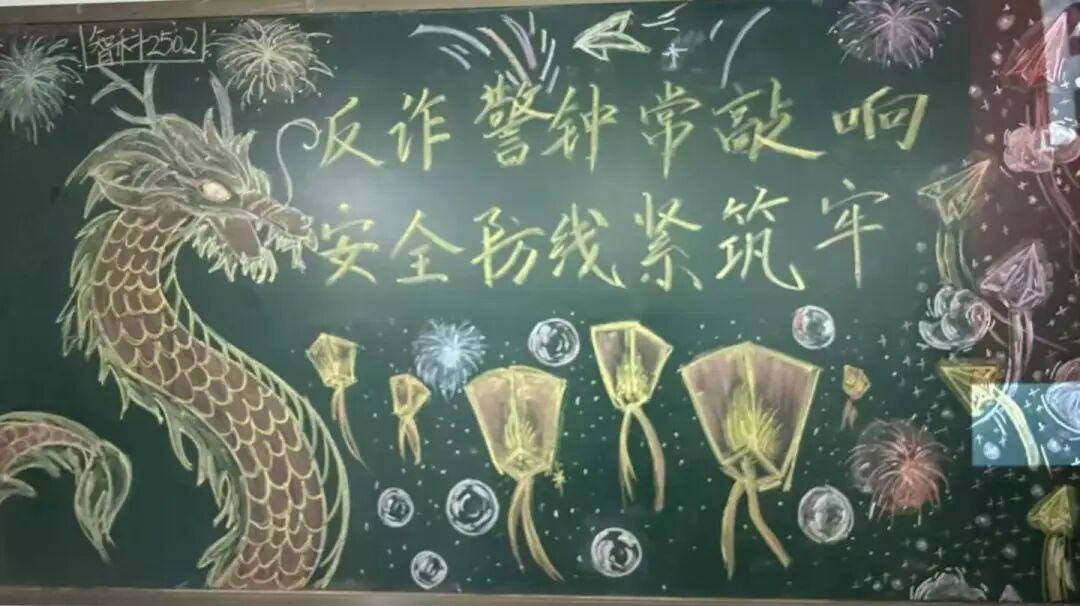 智科2502
反诈警钟常敲响
安全防线紧筑牢